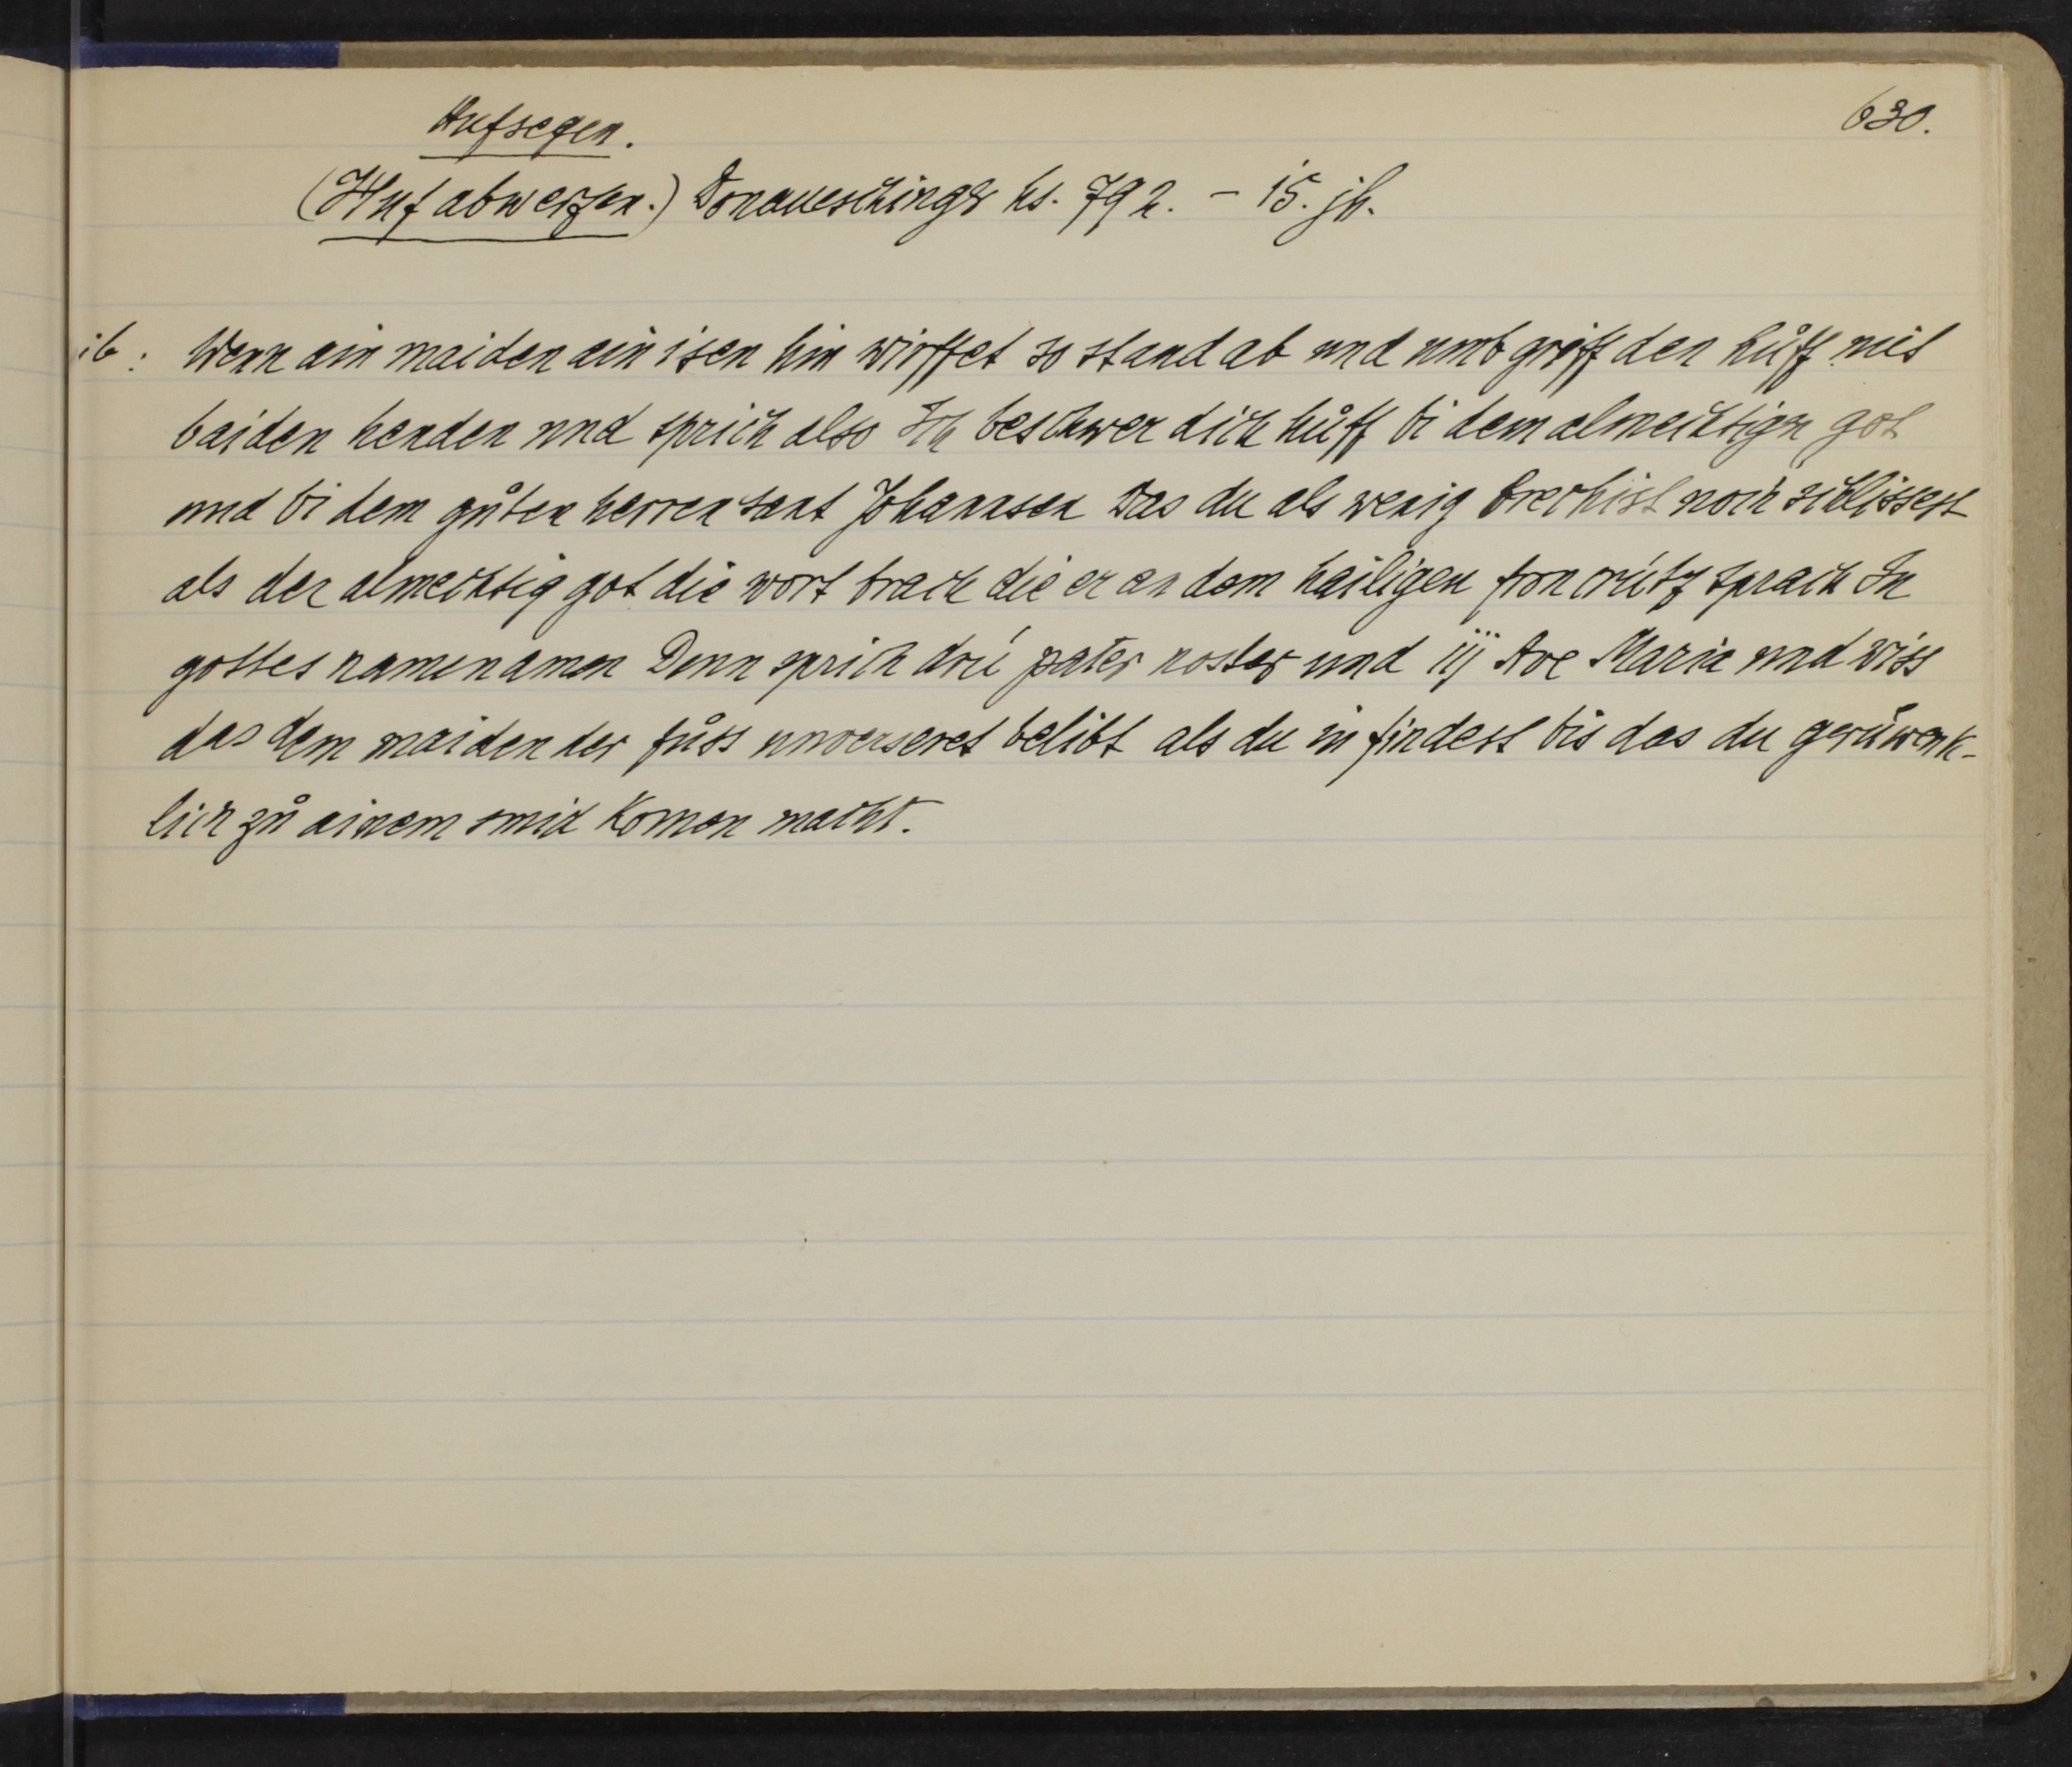 Hufsegen.
630.
(Huf abwerfen.) Donaueschinger hs. 792. – 15. jh.
ib: Wenn ain maiden ain isen hin wirffet so stand ab und umb griff den hůff mit
baiden henden und sprich also Ich beschwer dich hůff bi dem almechtigen got
und bi dem gůten herren sant Johannsen das du als wenig brechist noch schlissest
als der almechtig got die wort brach die er an dem hailigen fron crütz sprach In
gottes namen amen Denn sprich drü pater noster und iij Ave Maria und wiss
das dem maiden der fůss unverseret belibt als du in findest bis das du gerůwenk-
lich zů ainem smid komen macht.